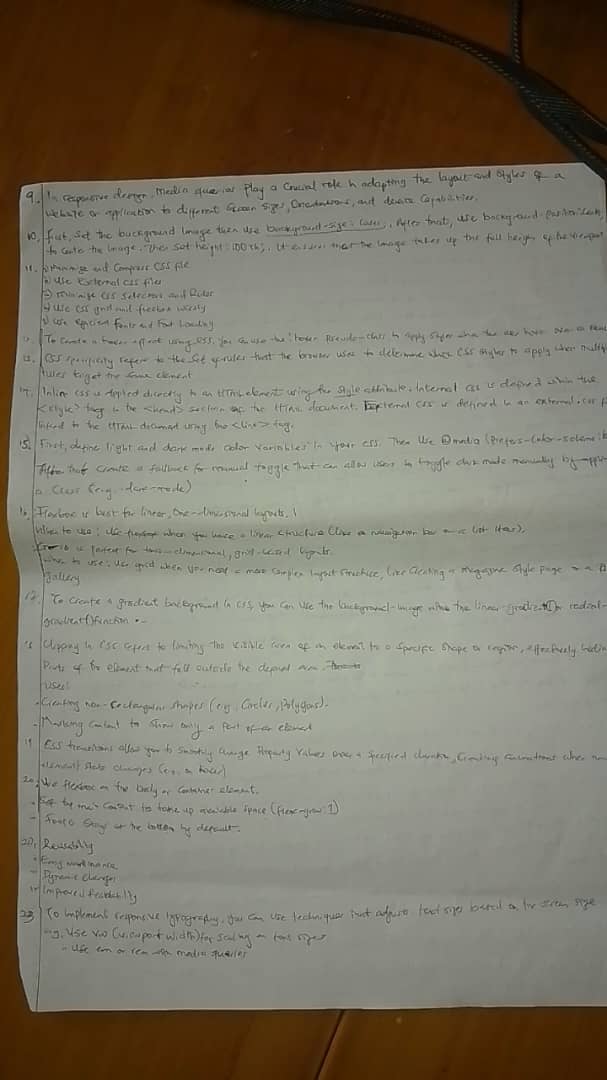 9. In responsive design, media queries play a crucial role in adapting the layout and styles of a
website or application to different screen sizes, orientations, and device capabilities.
10, first, set the background image then use background-size: cover; . After that, use background-position: center,
to center the image. Then set height: 100vh; . It ensures that the image takes up the full height of the viewport
11. Minimize and compress CSS file
Use External css files
Minimize CSS selectors and Rules
Use css grid and flexbox wisely
Use efficient fonts and font loading
To create a hover effect using CSS, you can use the :hover Pseudo-class to apply styles when the user hovers over
CSS specificity refers to the set of rules that the browser uses to determine which CSS styles to apply when
rules target the same element
Inline css is applied directly to an HTML element using the style attribute. Internal css is defined within the
<style> tag in the <head> section of the HTML document. External css is defined in an external .css
linked to the HTML document using the <line> tag.
15. First, define light and dark mode color variables in your css. Then Use @media (prefers-color-scheme:
After that create a fallback for manual toggle that can allow users to toggle dark mode manually by
a class (e.g. .dark-mode)
Flexbox is best for linear, one-dimensional layouts.
When to use: Use flexbox when you have a linear structure (like a navigation bar or a list item).
Grid is perfect for two-dimensional, grid-based layouts.
When to use: Use grid when you need a more complex layout structure, like creating a magazine style page or a
gallery
17. To create a gradient background in CSS, you can use the background-image with the linear-gradient() or radial-
gradient() function
18 Clipping in CSS refers to limiting the visible area of an element to a specific shape or region, effectively
Parts of the element that fall outside the defined area.
Uses:
- Creating non-rectangular shapes (e.g. Circles, polygons).
- Masking content to show only a part of an element
19 CSS transitions allow you to smoothly change property values over a specified duration, creating animations when
element state changes (e.g. on hover)
20. Use flexbox on the body or container element.
- Set the main content to take up available space (flex-grow: 1)
- Footer stays at the bottom by default.
Reusability
Easy maintenance
Dynamic changes
Improved Readability
To implement responsive typography, you can use techniques that adjusts text sizes based on the screen size
e.g. Use vw (viewport width) for scaling font sizes
- Use em or rem with media queries